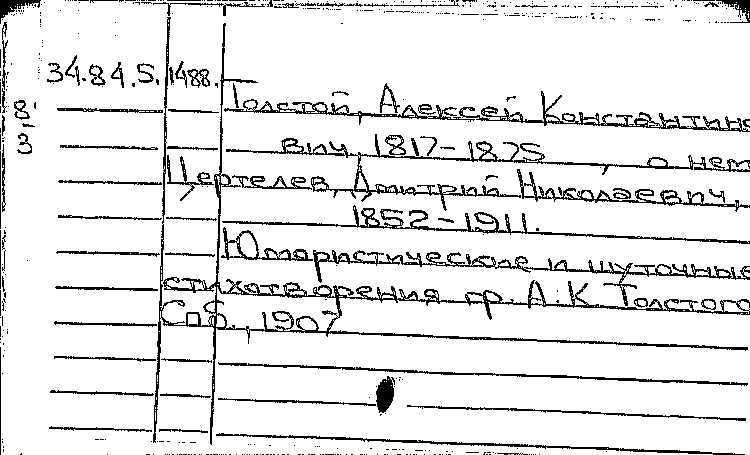 34.84.5. 1488.
8.
3
Толстой, Алексей Константино
вич, 1817-1875, о нем
Цертелев, Дмитрий Николаевич,
1852-1911.
Юмористические и шуточные
стихотворения гр. А.К. Толстого
Спб., 1907